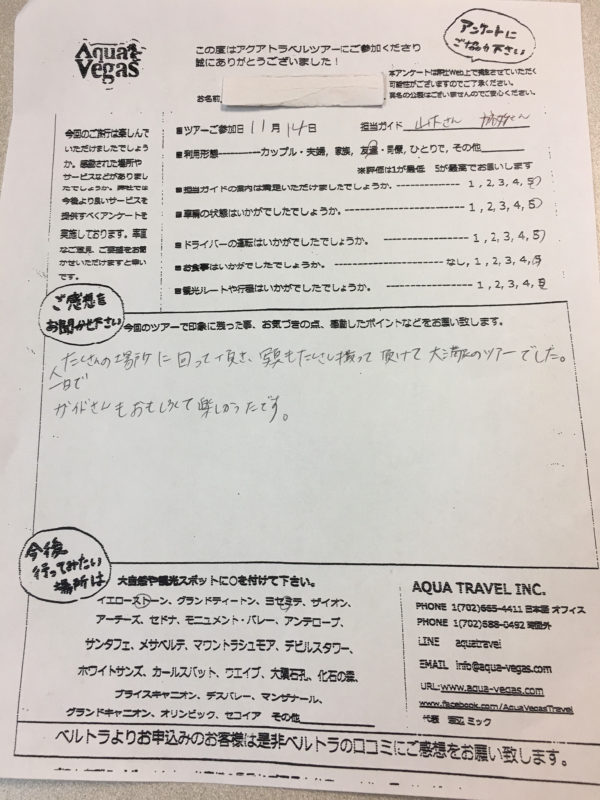 Aqua Vegas
この度はアクアトラベルツアーにご参加くださり
誠にありがとうございました！
アンケートに
ご協力下さい
本アンケートは弊社Web上で掲載させていただく
可能性がございますのでご了承ください。
実名の公表はございませんのでご安心ください。
お名前
今回のご旅行は楽しんで
いただけましたでしょう
か。感動された場所や
サービスなどがありまし
たでしょうか。弊社では
今後より良いサービスを
提供すべくアンケートを
実施しております。率直
なご意見、ご要望をお聞
かせいただけますと幸い
です。
■ツアーご参加日 11月 14日 担当ガイド 山下さん
■利用形態 カップル・夫婦, 家族, 友達・同僚, ひとりで, その他
※評価は1が最低 5が最高でお願いします
■担当ガイドの案内は満足いただけましたでしょうか。 1, 2, 3, 4, 5
■車輌の状態はいかがでしたでしょうか。 1, 2, 3, 4, 5
■ドライバーの運転はいかがでしたでしょうか。 1, 2, 3, 4, 5
■お食事はいかがでしたでしょうか。 なし, 1, 2, 3, 4, 5
■観光ルートや行程はいかがでしたでしょうか。 1, 2, 3, 4, 5
ご感想を
お聞かせ下さい
今回のツアーで印象に残った事、お気づきの点、感動したポイントなどをお願い致します。
たくさんの場所に回って頂き、写真もたくさん撮って頂けて大満足のツアーでした。
一日で
ガイドさんもおもしろくて楽しかったです。
今後
行ってみたい
場所は
大自然や観光スポットに〇を付けて下さい。
イエローストーン、グランドティートン、ヨセミテ、ザイオン、
アーチーズ、セドナ、モニュメント・バレー、アンテロープ、
サンタフェ、メサベルデ、マウントラシュモア、デビルスタワー、
ホワイトサンズ、カールスバット、ウエイブ、大隕石孔、化石の森、
ブライスキャニオン、デスバレー、マンザナール、
グランドキャニオン、オリンピック、セコイア その他
AQUA TRAVEL INC.
PHONE 1(702)665-4411 日本語 オフィス
PHONE 1(702)688-0492 時間外
LINE aquatravel
EMAIL info@aqua-vegas.com
URL:www.aqua-vegas.com
www.facebook.com/AquaVegasTravel
代表 ミック
ベルトラよりお申込みのお客様は是非ベルトラの口コミにご感想をお願い致します。